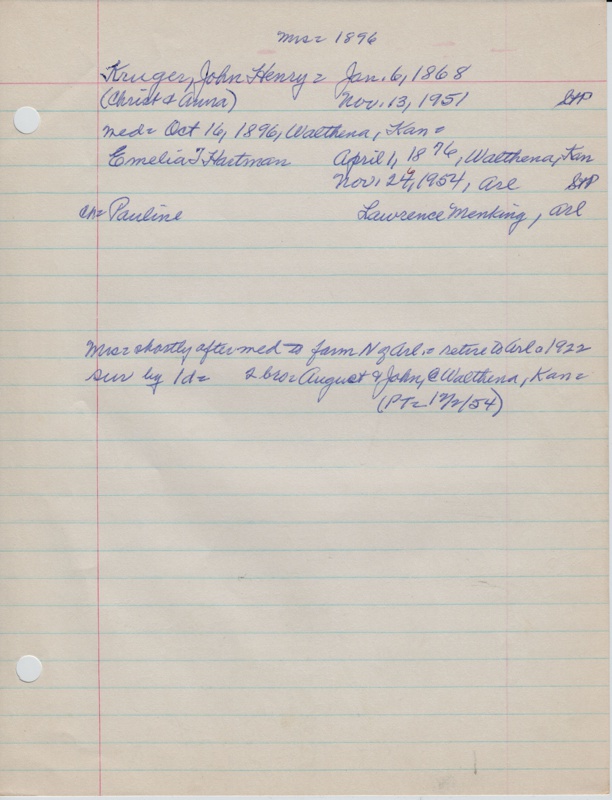 Mvs= 1896
Kruger, John Henry = Jan. 6, 1868
(Christ & Anna) Nov. 13, 1951 StP
med= Oct 16, 1896, Walthena, Kan=
Emelia T Hartman April 1, 1876, Walthena, Kan
Nov. 24, 1954, Arl StP
ch= Pauline Lawrence Menking, Arl
Mvs= shortly after med to farm N of Arl. = retire to Arl 1922
sur by 1d= 2 bro= August & John, @ Walthena, Kan=
(PT= 12/2/54)